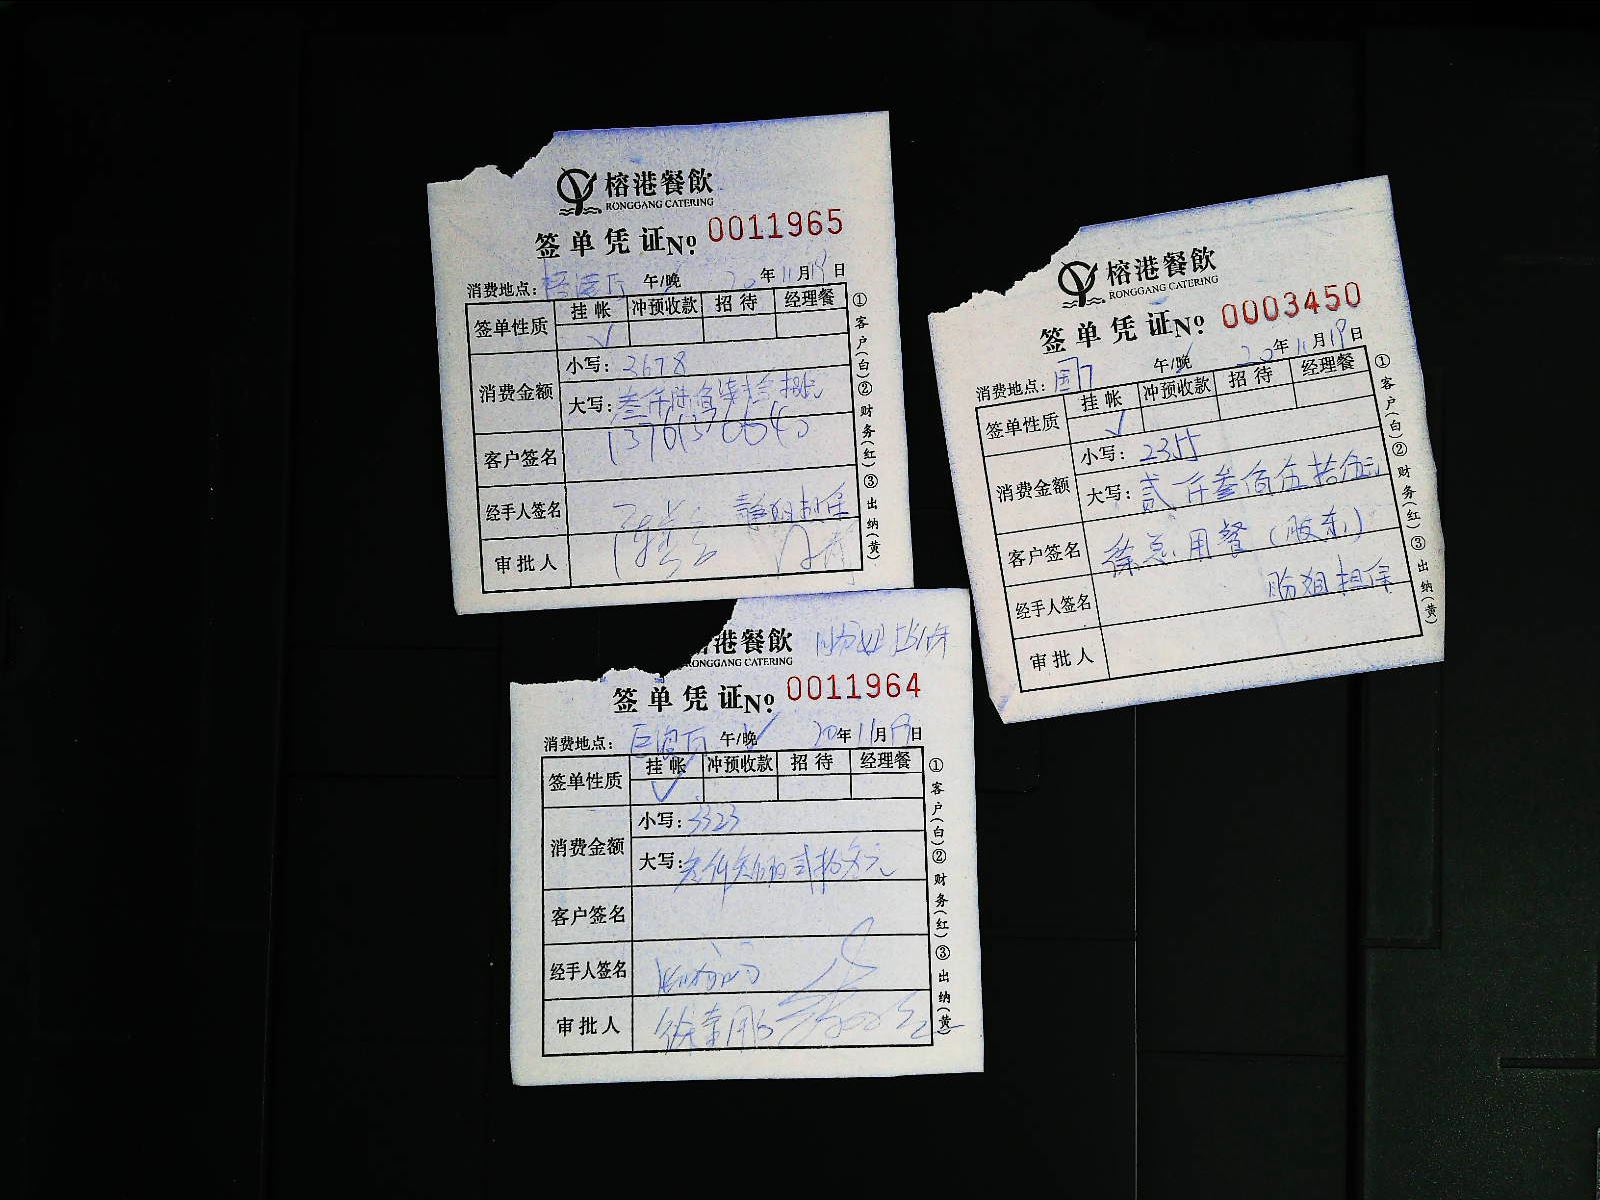 榕港餐飲
RONGGANG CATERING
签单凭证No. 0011965
消费地点：榕港厅 午/晚 20年11月19日
签单性质 挂帐 冲预收款 招待 经理餐
✓
消费金额 小写：3678
大写：叁仟陆佰柒拾捌元
客户签名 13761376640
经手人签名 静姐担保
审批人
①客户(白)②财务(红)③出纳(黄)
榕港餐飲
RONGGANG CATERING
签单凭证No. 0003450
消费地点：国门 午/晚 20年11月19日
签单性质 挂帐 冲预收款 招待 经理餐
✓
消费金额 小写：2355
大写：贰仟叁佰伍拾伍元
客户签名 徐总用餐(股东)
经手人签名 盼姐担保
审批人
①客户(白)②财务(红)③出纳(黄)
港餐飲
RONGGANG CATERING
签单凭证No. 0011964
消费地点： 午/晚 ✓ 20年11月19日
签单性质 挂帐 冲预收款 招待 经理餐
✓
消费金额 小写：3323
大写：叁仟叁佰贰拾叁元
客户签名
经手人签名
审批人
①客户(白)②财务(红)③出纳(黄)